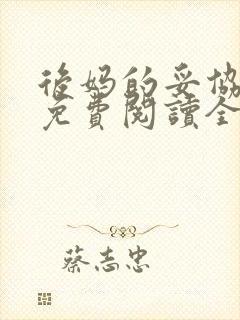 後妈的妥協
免費閱讀全
蔡志忠